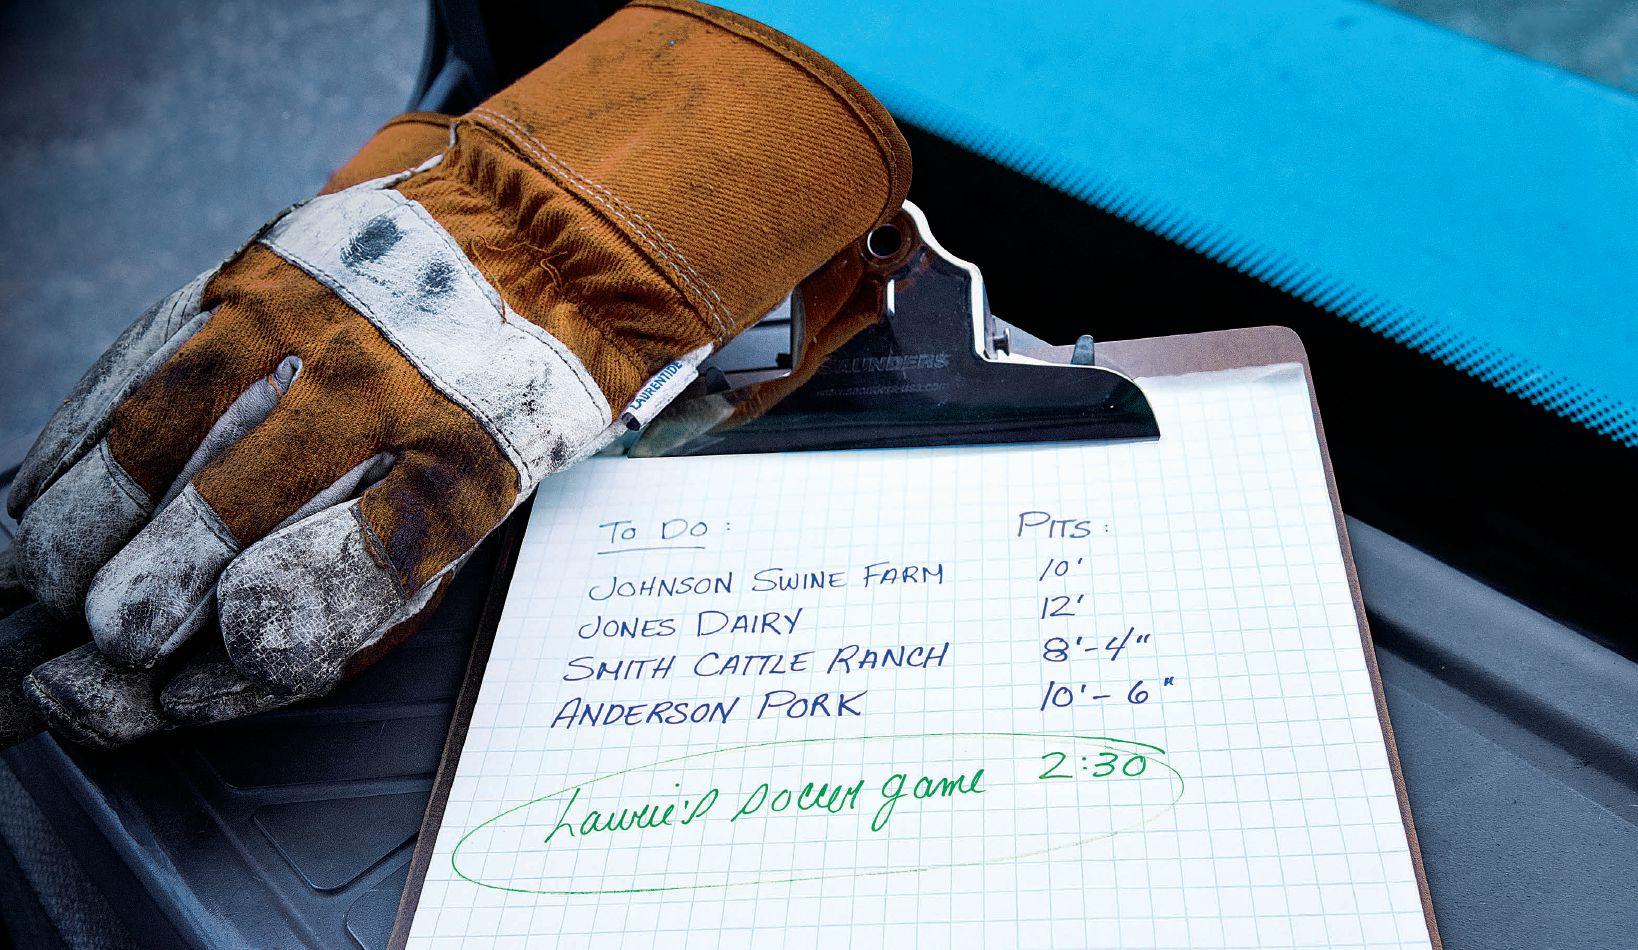 LAURENTIDE
SAUNDERS
To Do :
PITS :
JOHNSON SWINE FARM 10'
JONES DAIRY 12'
SMITH CATTLE RANCH 8'-4"
ANDERSON PORK 10'-6"
Laurie's soccer game 2:30